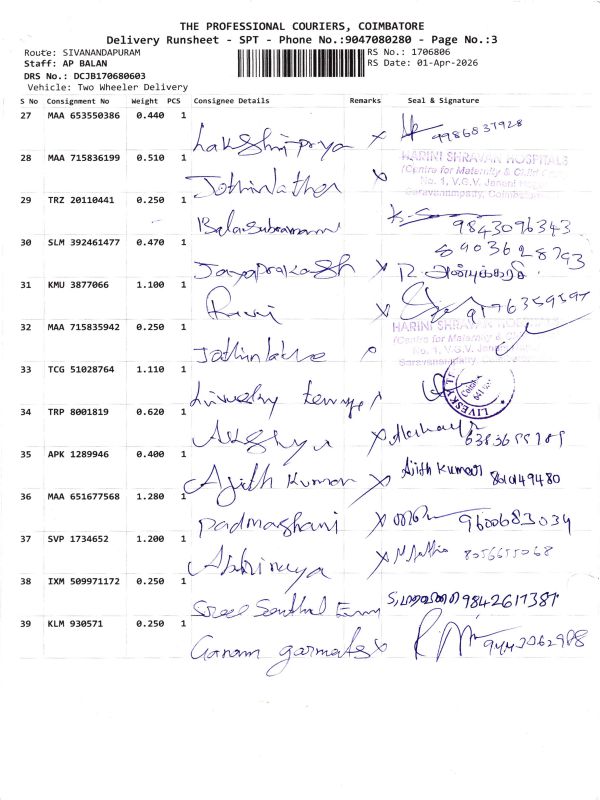 THE PROFESSIONAL COURIERS, COIMBATORE
Delivery Runsheet - SPT - Phone No.:9047080280 - Page No.:3
Route: SIVANANDAPURAM RS No.: 1706806
Staff: AP BALAN RS Date: 01-Apr-2026
DRS No.: DCJB170680603
Vehicle: Two Wheeler Delivery
S No Consignment No Weight PCS Consignee Details Remarks Seal & Signature
27 MAA 653550386 0.440 1
Lakshmipriya x 9986837928
28 MAA 715836199 0.510 1
HARINI SHRAVAN HOSPITALS
(Centre for Maternity & Child
No. 1, V.G.V. Janani
Saravanampatty, Coimbatore
29 TRZ 20110441 0.250 1
Balasubramani 9843096343
30 SLM 392461477 0.470 1
8903628793
Jayaprakash x
31 KMU 3877066 1.100 1
Ravi x
32 MAA 715835942 0.250 1
HARINI SHRAVAN
(Centre for Maternity &
No. 1, V.G.V.
Saravanampatty
33 TCG 51028764 1.110 1
LIVESKY
34 TRP 8001819 0.620 1
x
35 APK 1289946 0.400 1
Ajith Kumar x Ajith Kumar
36 MAA 651677568 1.280 1
Padmashani x 9600683034
37 SVP 1734652 1.200 1
Abhinaya x 8056655068
38 IXM 509971172 0.250 1
Sree Senthil 9842617387
39 KLM 930571 0.250 1
Ganam garmats x 9443062988